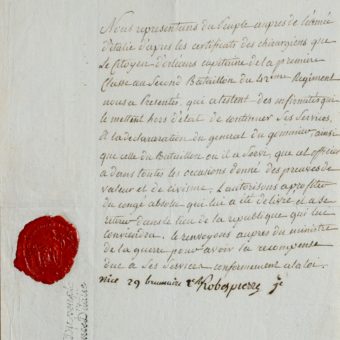 Nous representans du peuple aupres de l'armée
d'italie d'après les certificats des chirurgiens que
Le Citoyen d'orleurs capitaine de la premiere
Classe au Second Bataillon du 42eme Regiment
nous a Presentés, qui attestent des infirmités qui
le mettent hors d'état de continuer Ses Services,
a la declaration du general du gommier ainsi
que celle du Bataillon ou il a Servi, que cet officier
a dans toutes les occasions donné des preuves de
valeur et de civisme, L'autorisons a profiter
du congé absolu qui lui a été delivré et a se
retirer dans le lieu de la republique qui lui
conviendra. le renvoyons aupres du ministre
de la guerre pour avoir la recompense
due a Ses Services conformement a la loi.
nice 29 brumaire Robespierre je